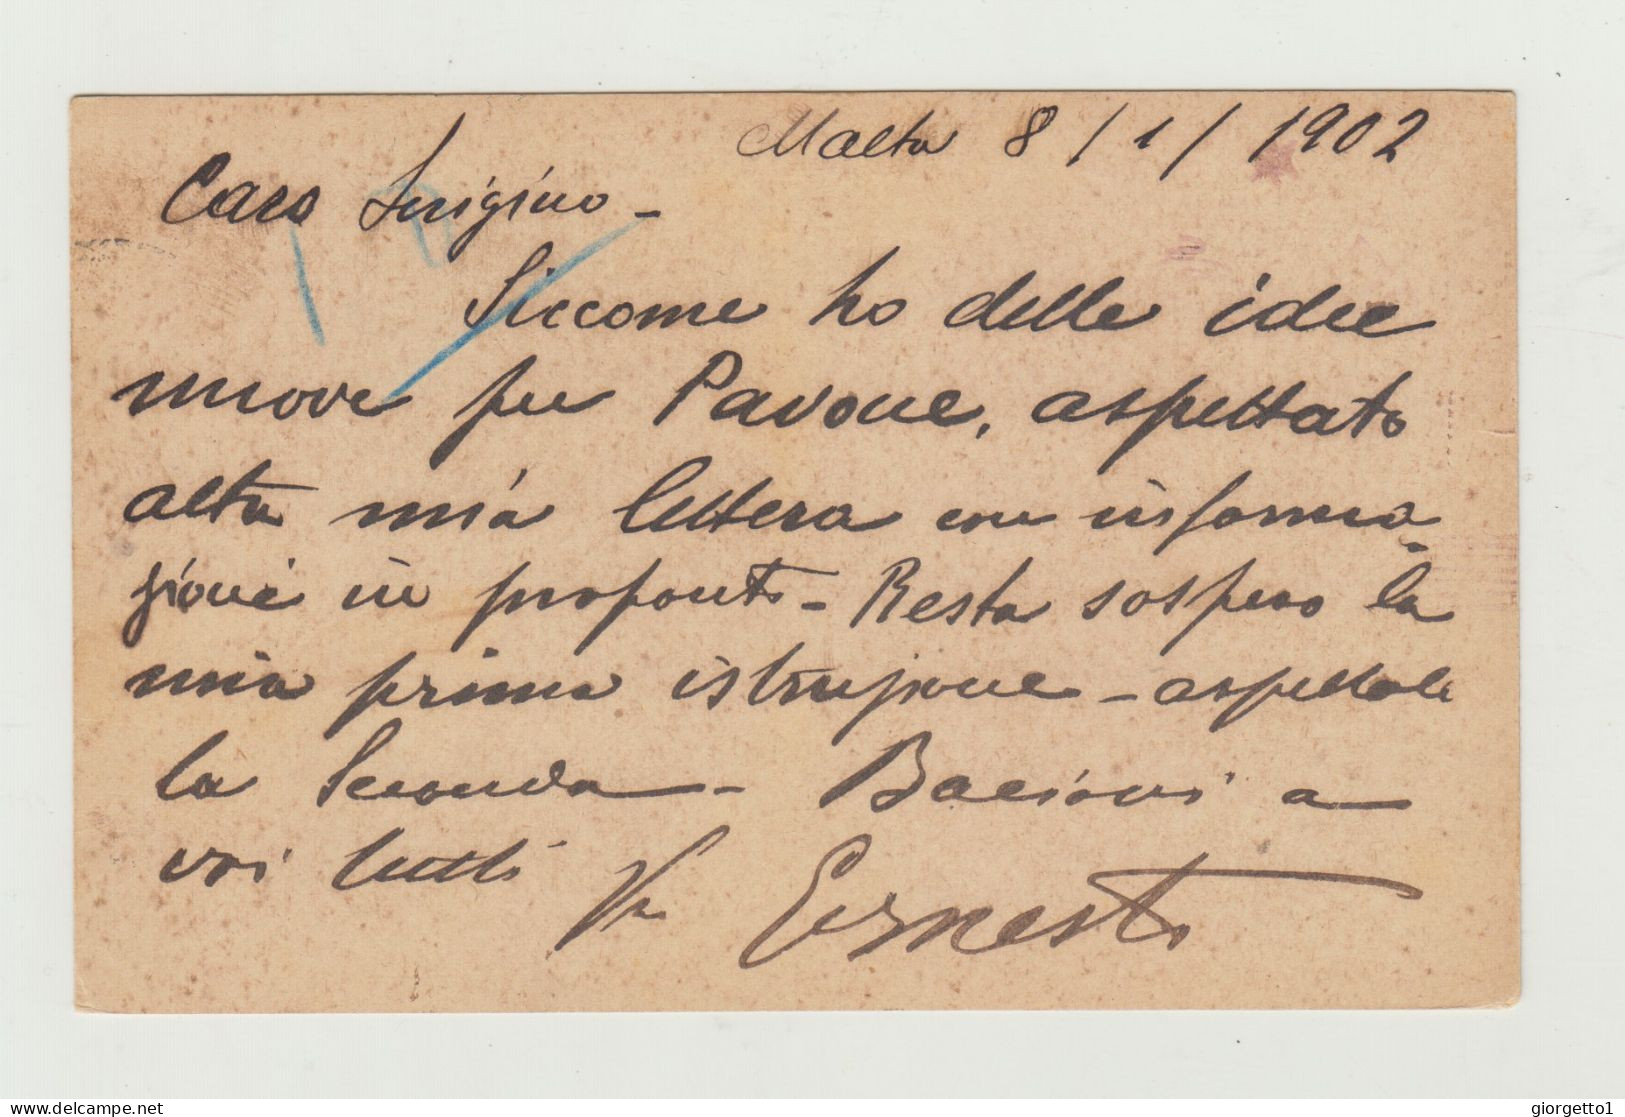 Malta 8/1/1902
Caro Luigino -
Siccome ho delle idee
nuove per Pavone, aspettate
altra mia lettera con informa-
zioni in proposito - Resta sospeso la
mia prima istruzione - aspettate
la Seconda - Bacioni a
voi tutti
Ernesto
giorgetto1
delcampe.net